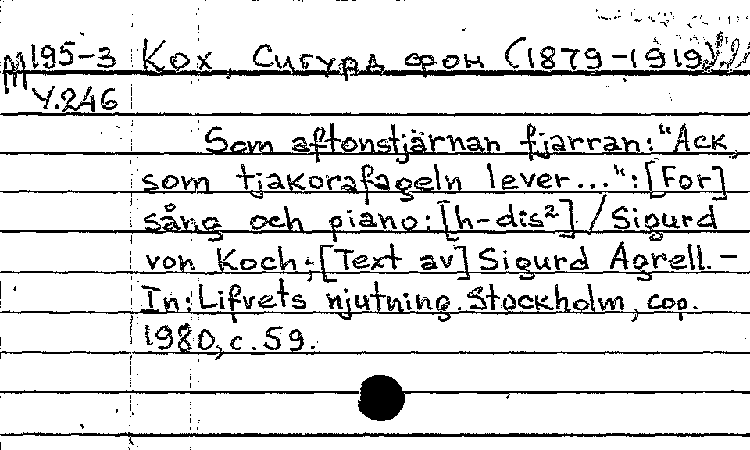 М195-3 Кох, Сигурд фон (1879-1919).
У.246
Som aftonstjärnan fjarran: "Ack,
som tjakorafageln lever...": [For]
sång och piano: [h-dis²] / Sigurd
von Koch; [Text av] Sigurd Agrell. –
In: Lifvets njutning. Stockholm, cop.
1980, с. 59.